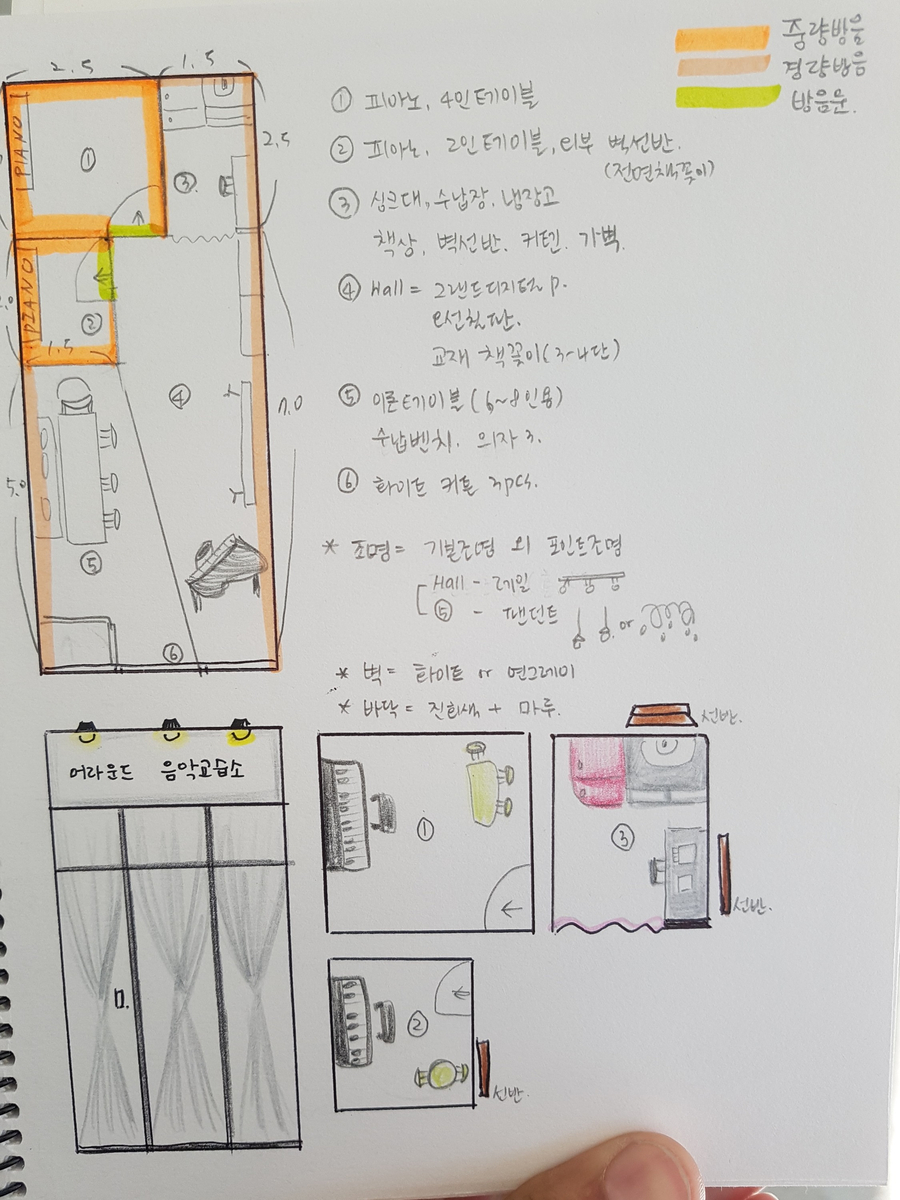 중량방음
경량방음
방음문.
2.5
1.5
2.5
PIANO
①
③
PIANO
②
1.5
④
7.0
5.0
⑤
⑥
① 피아노, 4인테이블
② 피아노, 2인테이블, 외부 벽선반.
(전면책꽂이)
③ 싱크대, 수납장, 냉장고
책상, 벽선반. 커텐. 가벽.
④ Hall = 그랜드디지털 P.
오선칠판.
교재 책꽂이(3~4단)
⑤ 이론테이블 (6~8인용)
수납벤치. 의자 3.
⑥ 화이트 커튼 3pcs.
* 조명 = 기본조명 외 포인트조명
Hall - 레일
⑤ - 팬던트
or
* 벽 = 화이트 or 연그레이
* 바닥 = 진회색 + 마루.
어라운드 음악교습소
①
선반.
③
선반.
②
선반.